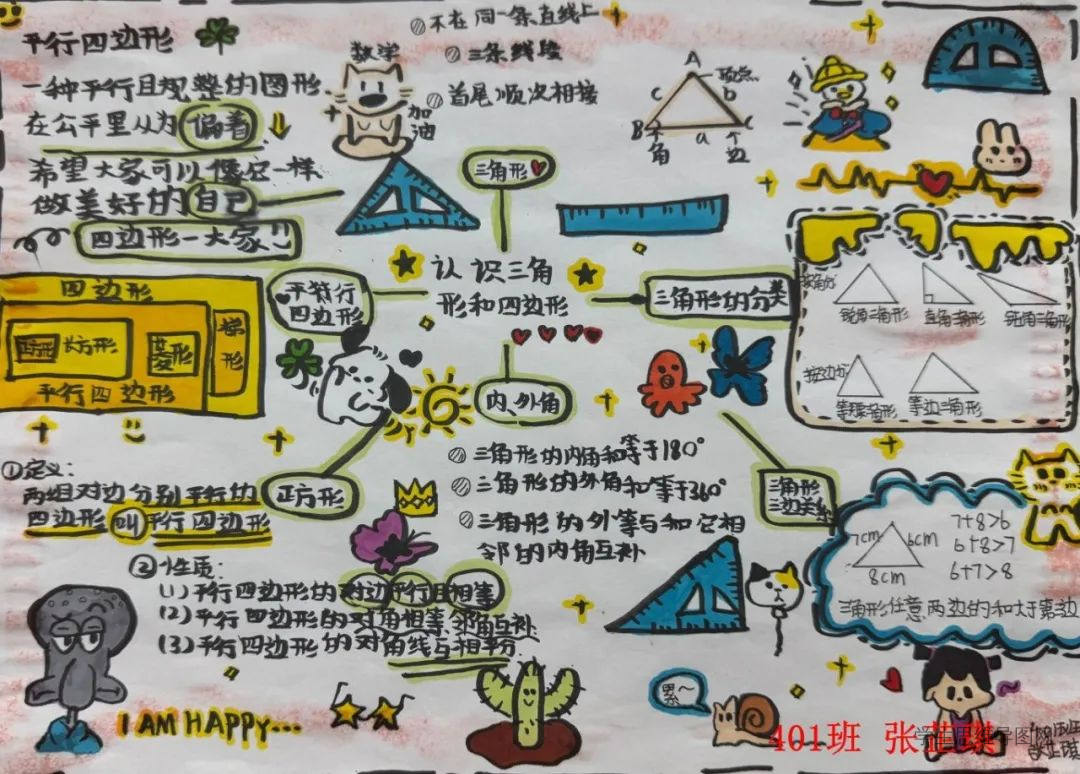 平行四边形
一种平行且规整的图形
在公平里从为偏着
希望大家可以像它一样
做美好的自己
四边形一大家!!
数学
加油
不在同一条直线上
三条线段
首尾顺次相接
A
顶点
c
b
B
C
a
角
边
三角形
认识三角
形和四边形
平行
四边形
三角形的分类
内、外角
正方形
三角形
三边关系
四边形
长方形
菱形
梯形
平行四边形
按角分
锐角三角形
直角三角形
钝角三角形
按边分
等腰三角形
等边三角形
三角形的内角和等于180°
三角形的外角和等于360°
三角形的外等与和它相
邻的内角互补
①定义:
两组对边分别平行的
四边形叫平行四边形
②性质:
(1)平行四边形的对边平行且相等
(2)平行四边形的对角相等,邻角互补
(3)平行四边形的对角线互相平分
7cm
6cm
8cm
7+8>6
6+8>7
6+7>8
三角形任意两边的和大于第三边
I AM HAPPY...
累~
401班 张芷琪